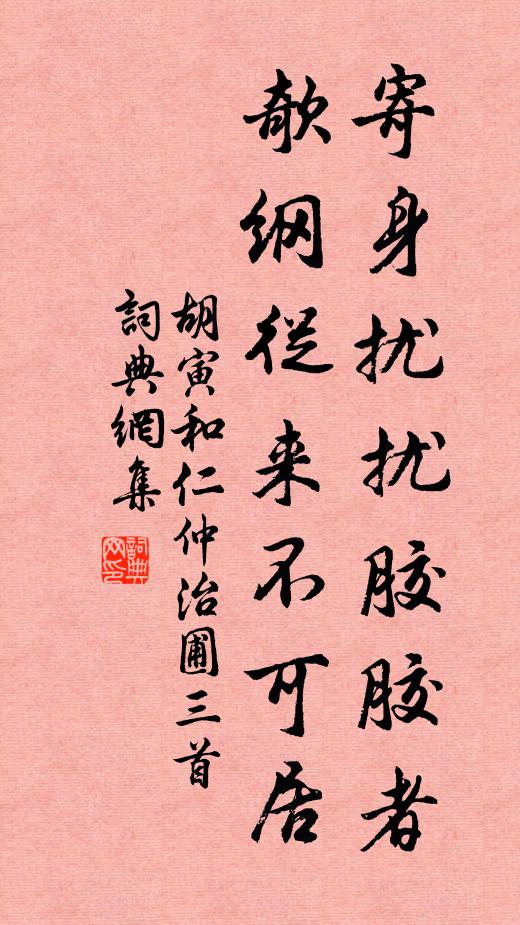 寄身扰扰胶胶者
欹纲従来不可居
胡寅和仁仲治圃三首
詞典網集
詞典网印